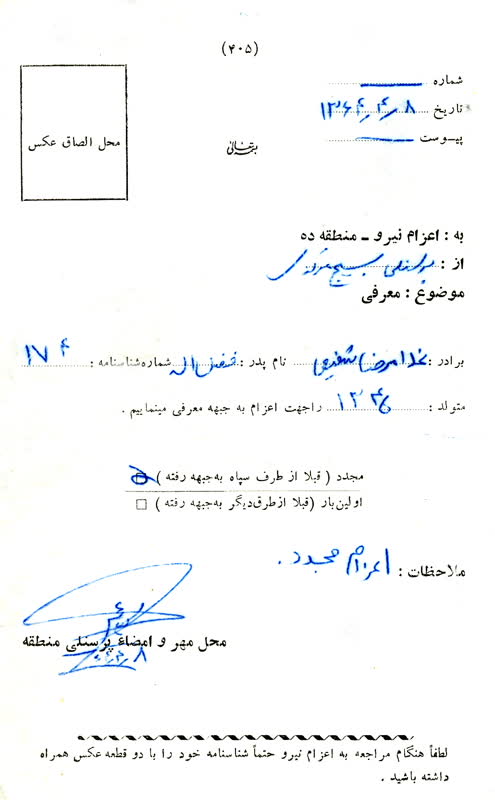 (۴۰۵)
شماره
تاریخ ۱۳۶۴/۴/۸
پیوست
محل الصاق عکس
بسمه‌تعالی
به : اعزام نیرو ـ منطقه ده
از : پرسنلی بسیج مرکزی
موضوع : معرفی
برادر : غلامرضا شفیعی نام پدر : فضل اله شماره شناسنامه : ۱۷۴
متولد : ۱۳۴۶ راجهت اعزام به جبهه معرفی مینماییم .
مجدد ( قبلا از طرف سپاه به جبهه رفته )
اولین بار ( قبلا از طرق دیگر به جبهه رفته )
ملاحظات : اعزام مجدد .
محل مهر و امضاء پرسنلی منطقه
لطفاً هنگام مراجعه به اعزام نیرو حتماً شناسنامه خود را با دو قطعه عکس همراه
داشته باشید .